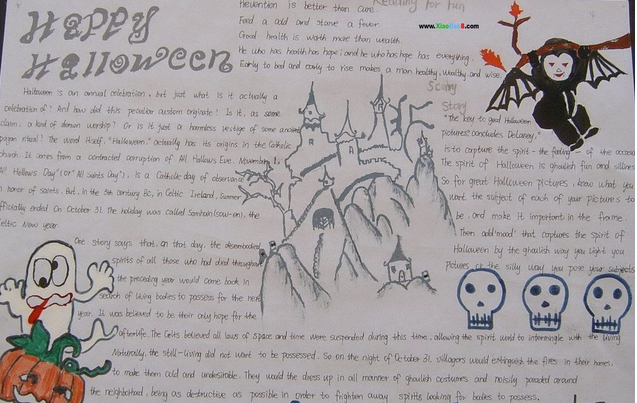 Happy
Halloween
Prevention is better than cure.
Reading for fun
Feed a cold and starve a fever.
Good health is worth more than wealth
He who has health has hope; and he who has hope has everything.
Early to bed and early to rise makes a man healthy, wealthy and wise.
www.Xiao 8.com
Scary
Story
Halloween is an annual celebration, but just what is it actually a
celebration of? And how did this peculiar custom originate? Is it, as some
claim, a kind of demon worship? Or is it just a harmless vestige of some ancient
pagan ritual? The word itself, "Halloween," actually has its origins in the Catholic
Church. It comes from a contracted corruption of All Hallows Eve. November 1,
"All Hallows Day" (or "All Saints Day"), is a Catholic day of observance
in honor of saints. But, in the 5th century BC, in Celtic Ireland, summer
officially ended on October 31. The holiday was called Samhain (sow-en), the
Celtic New year.
One story says that, on that day, the disembodied
spirits of all those who had died throughout
the preceding year would come back in
search of living bodies to possess for the next
year. It was believed to be their only hope for the
afterlife. The Celts believed all laws of space and time were suspended during this time, allowing the spirit world to intermingle with the living
Naturally, the still-living did not want to be possessed. So on the night of October 31, villagers would extinguish the fires in their homes,
to make them cold and undesirable. They would the dress up in all manner of ghoulish costumes and noisily paraded around
the neighborhood, being as destructive as possible in order to frighten away spirits looking for bodies to possess.
"The key to good Halloween
pictures," concludes Delaney,
"is to capture the spirit - the feeling - of the occasion
The spirit of Halloween is ghoulish fun and silliness
So for great Halloween pictures, know what you
want the subject of each of your pictures to
be, and make it important in the frame.
Then add 'mood' that captures the spirit of
Halloween by the ghoulish way you light you
pictures or the silly way you pose your subjects